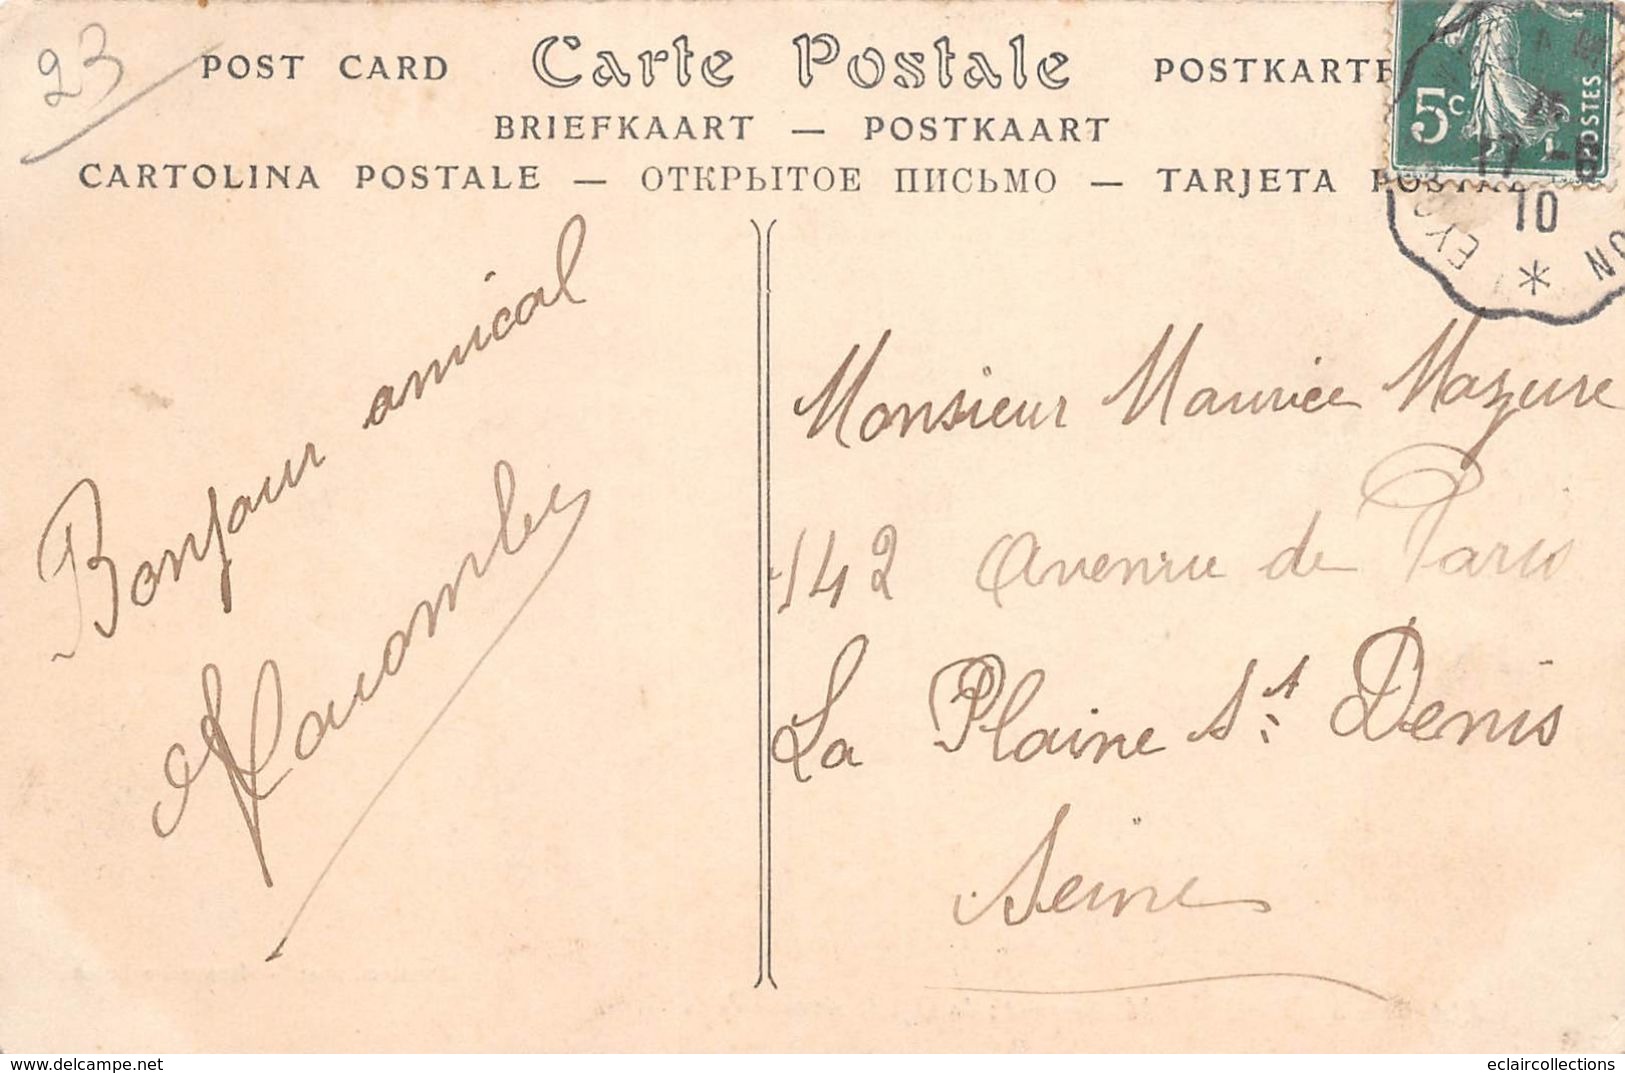 23
POST CARD Carte Postale POSTKARTE
BRIEFKAART — POSTKAART
CARTOLINA POSTALE — ОТКРЫТОЕ ПИСЬМО — TARJETA POSTAL
5c
POSTES
17 -5
10
EY
ON
Bonjour amical
Monsieur Maurice Mazure
142 Avenue de Paris
La Plaine St Denis
Seine
www.delcampe.net
eclaircollections